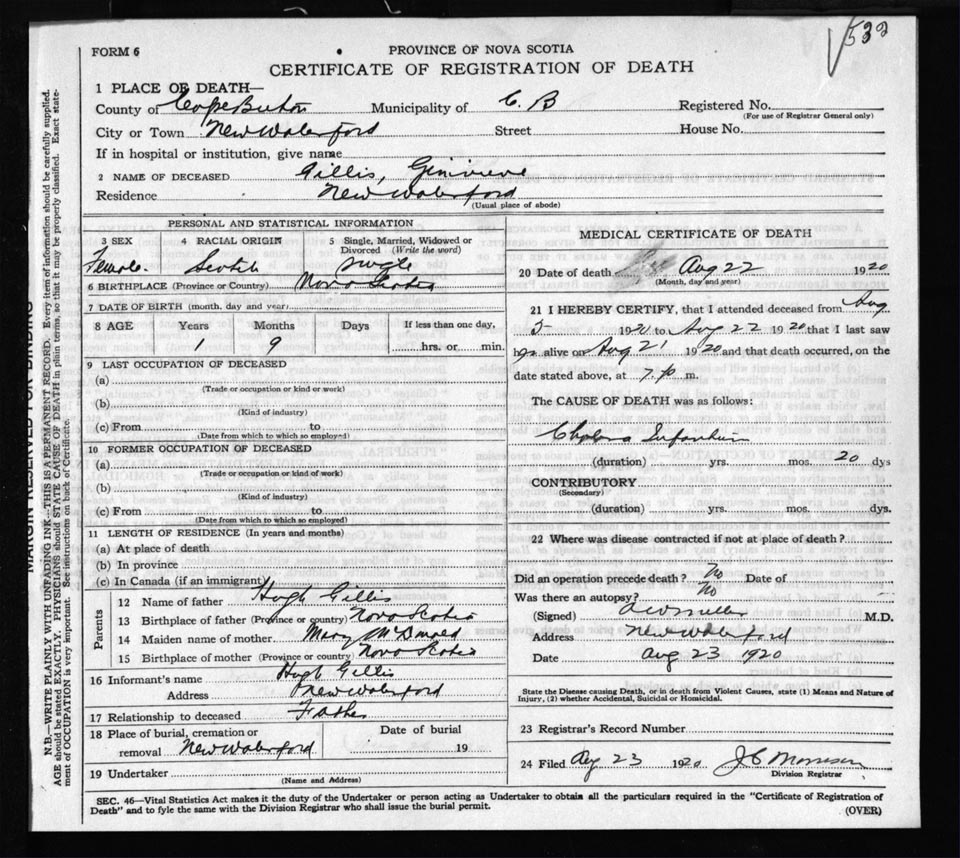 532
FORM 6
PROVINCE OF NOVA SCOTIA
CERTIFICATE OF REGISTRATION OF DEATH
1 PLACE OF DEATH—
County of Cape Breton Municipality of C. B Registered No.
(For use of Registrar General only)
City or Town New Waterford Street House No.
If in hospital or institution, give name
2 NAME OF DECEASED Gillis, Ginivieve
Residence New Waterford
(Usual place of abode)
PERSONAL AND STATISTICAL INFORMATION
3 SEX 4 RACIAL ORIGIN 5 Single, Married, Widowed or Divorced (Write the word)
Female. Scotch single
6 BIRTHPLACE (Province or Country) Nova Scotia
7 DATE OF BIRTH (month, day and year)
8 AGE Years Months Days If less than one day,
1 9 hrs. or min.
9 LAST OCCUPATION OF DECEASED
(a)
(Trade or occupation or kind or work)
(b)
(Kind of industry)
(c) From to
(Date from which to which so employed)
10 FORMER OCCUPATION OF DECEASED
(a)
(Trade or occupation or kind of work)
(b)
(Kind of industry)
(c) From to
(Date from which to which so employed)
11 LENGTH OF RESIDENCE (In years and months)
(a) At place of death
(b) In province
(c) In Canada (if an immigrant)
Parents
12 Name of father Hugh Gillis
13 Birthplace of father (Province or country) Nova Scotia
14 Maiden name of mother Mary McDonald
15 Birthplace of mother (Province or country) Nova Scotia
16 Informant's name Hugh Gillis
Address New Waterford
17 Relationship to deceased Father
18 Place of burial, cremation or Date of burial
removal New Waterford 19
19 Undertaker
(Name and Address)
MEDICAL CERTIFICATE OF DEATH
20 Date of death Aug 22 1920
(Month, day and year)
21 I HEREBY CERTIFY, that I attended deceased from Aug
5 1920 to Aug 22 1920 that I last saw
h alive on Aug 21 1920 and that death occurred, on the
date stated above, at 7. m.
The CAUSE OF DEATH was as follows:
Cholera Infantum
(duration) yrs. mos. 20 dys
CONTRIBUTORY
(Secondary)
(duration) yrs. mos. dys.
22 Where was disease contracted if not at place of death?
Did an operation precede death? No Date of
Was there an autopsy? No
(Signed) M.D.
Address New Waterford
Date Aug 23 1920
State the Disease causing Death, or in death from Violent Causes, state (1) Means and Nature of
Injury, (2) whether Accidental, Suicidal or Homicidal.
23 Registrar's Record Number
24 Filed Aug 23 1920 J C Morrison
Division Registrar
SEC. 46—Vital Statistics Act makes it the duty of the Undertaker or person acting as Undertaker to obtain all the particulars required in the "Certificate of Registration of
Death" and to fyle the same with the Division Registrar who shall issue the burial permit.
(OVER)
MARGIN RESERVED FOR BINDING
N.B.—WRITE PLAINLY WITH UNFADING INK—THIS IS A PERMANENT RECORD. Every item of information should be carefully supplied.
AGE should be stated EXACTLY. PHYSICIANS should STATE CAUSE OF DEATH in plain terms, so that it may be properly classified. Exact state-
ment of OCCUPATION is very important. See instructions on back of Certificate.